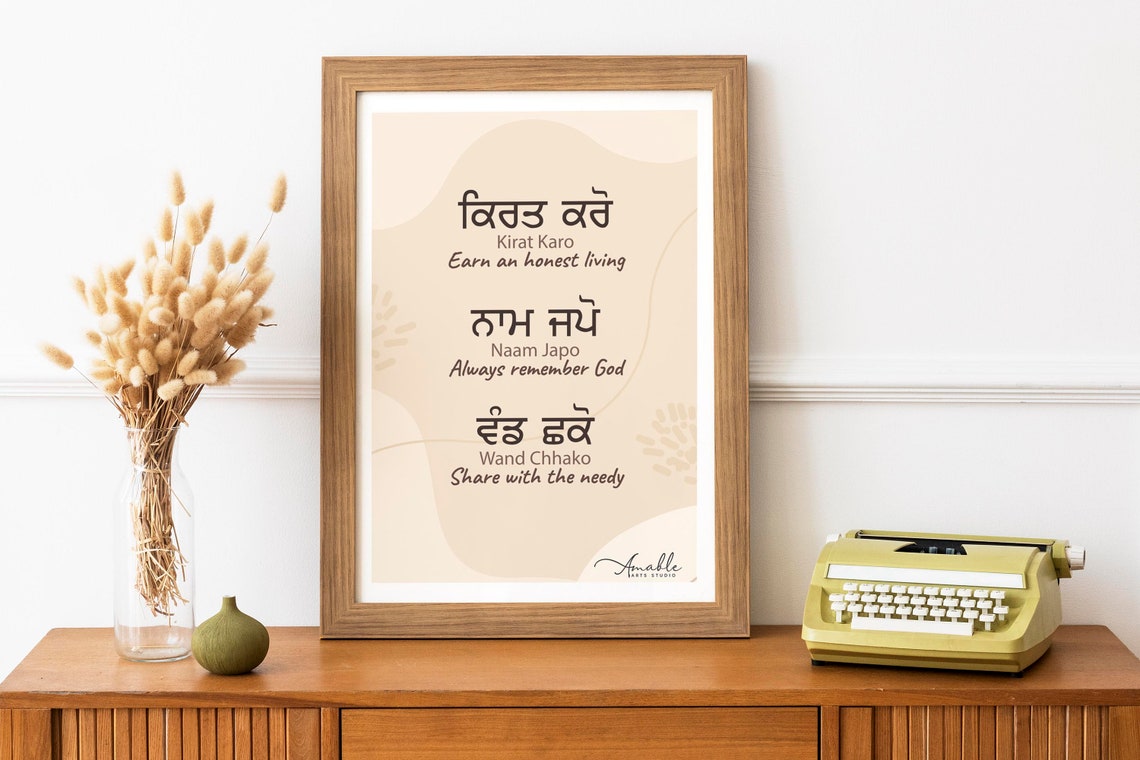 ਕਿਰਤ ਕਰੋ
Kirat Karo
Earn an honest living
ਨਾਮ ਜਪੋ
Naam Japo
Always remember God
ਵੰਡ ਛਕੋ
Wand Chhako
Share with the needy
Amable
ARTS STUDIO